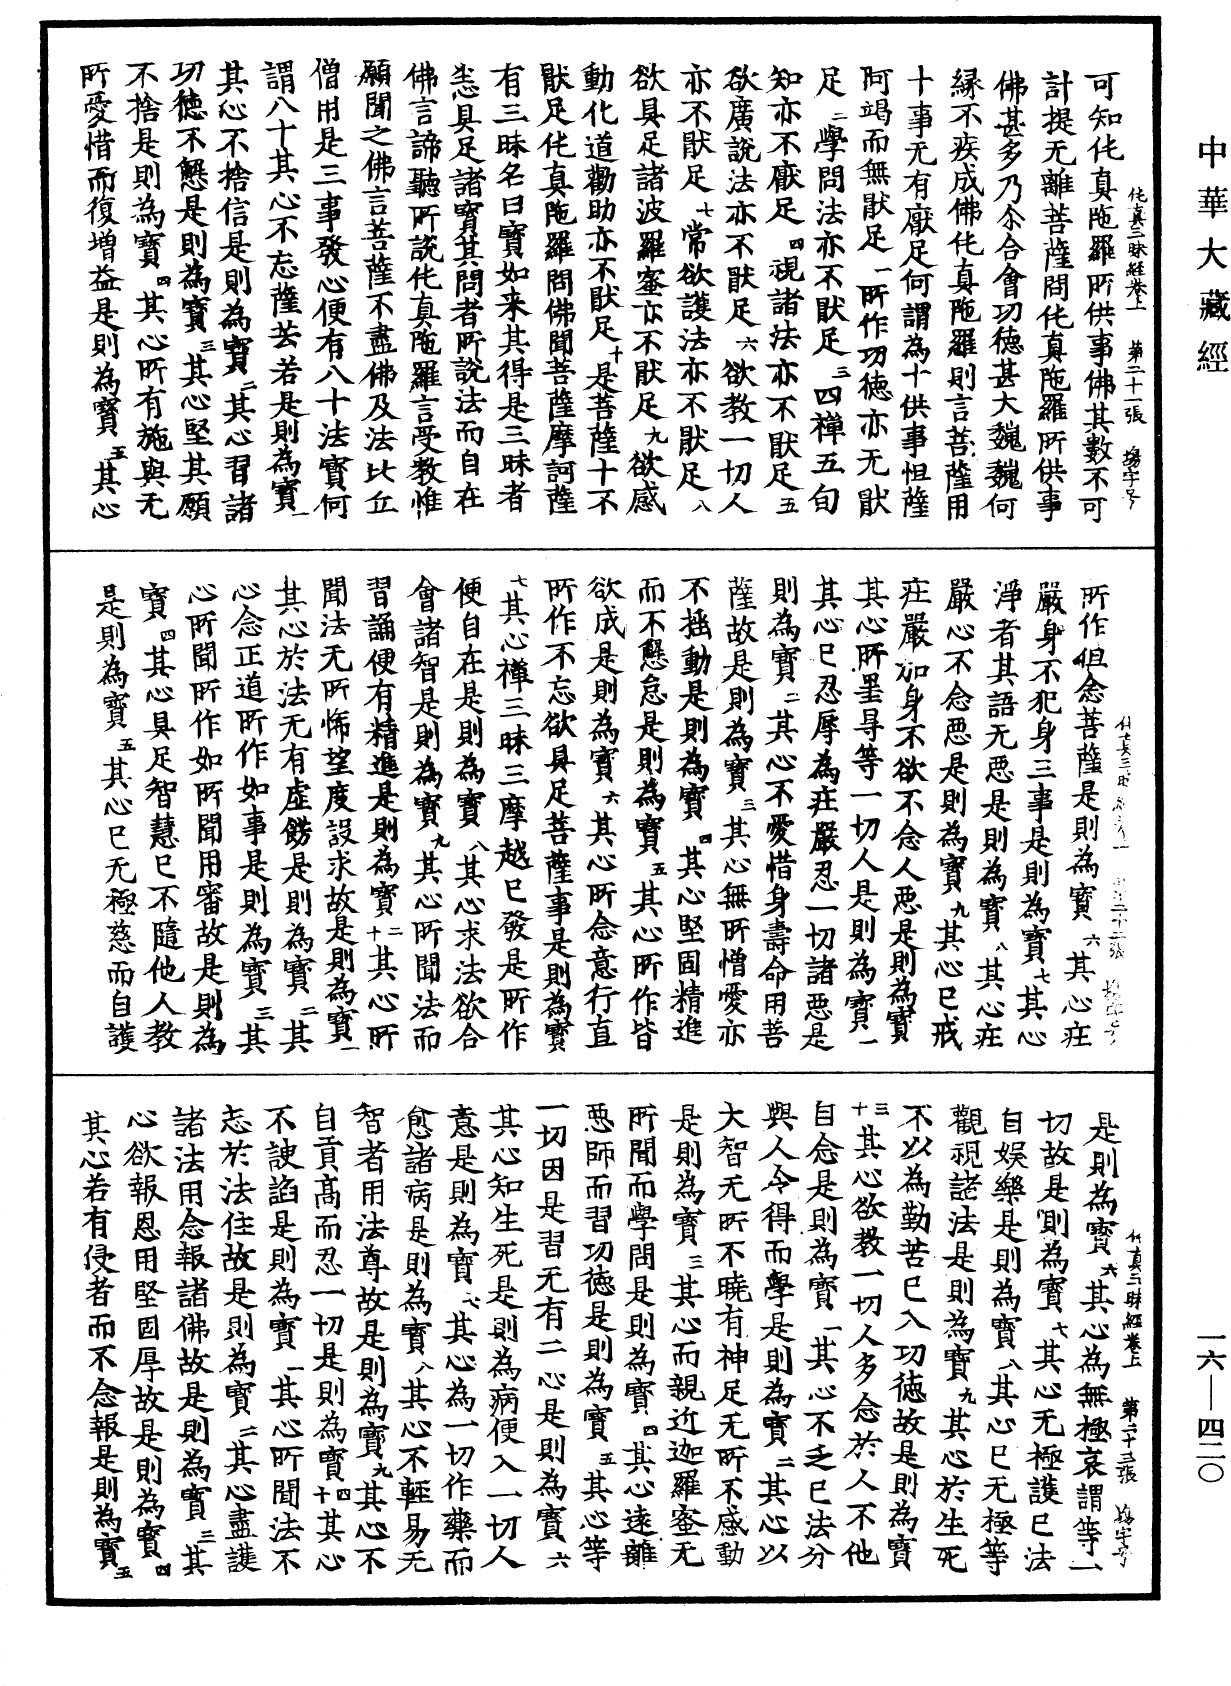 中華大藏經
一六—四二〇
伅真三昧經卷上 第二十一張 場字号
可知伅真陁羅所供事佛其數不可
計提无離菩薩問伅真陁羅所供事
佛甚多乃尒合會功德甚大巍巍何
緣不疾成佛伅真陁羅則言菩薩用
十事无有厭足何謂為十供事怛薩
阿竭而無猒足一所作功德亦无猒
足二學問法亦不猒足三四禪五旬
知亦不厭足四視諸法亦不猒足五
欲廣說法亦不猒足六欲教一切人
亦不猒足七常欲護法亦不猒足八
欲具足諸波羅蜜亦不猒足九欲感
動化道勸助亦不猒足十是菩薩十不
猒足伅真陁羅問佛聞菩薩摩訶薩
有三昧名曰寶如来其得是三昧者
悉具足諸寶其問者所說法而自在
佛言諦聽所說伅真陁羅言受教惟
願聞之佛言菩薩不盡佛及法比丘
僧用是三事發心便有八十法寶何
謂八十其心不忘薩芸若是則為寶一
其心不捨信是則為寶二其心習諸
功德不懸是則為寶三其心堅其願
不捨是則為寶四其心所有施與无
所愛惜而復增益是則為寶五其心
所作但念菩薩是則為寶六其心疘
嚴身不犯身三事是則為寶七其心
淨者其語无惡是則為寶八其心疘
嚴心不念惡是則為寶九其心已戒
疘嚴加身不欲不念人惡是則為寶
其心所置㝵等一切人是則為寶一
其心已忍辱為疘嚴忍一切諸惡是
則為寶二其心不愛惜身壽命用菩
薩故是則為寶三其心無所憎愛亦
不揺動是則為寶四其心堅固精進
而不懸怠是則為寶五其心所作皆
欲成是則為寶六其心所念意行直
所作不忘欲具足菩薩事是則為寶
七其心禪三昧三摩越已發是所作
便自在是則為寶八其心求法欲合
會諸智是則為寶九其心所聞法而
習誦便有精進是則為寶二十其心所
聞法无所怖望度設求故是則為寶一
其心於法无有虛餝是則為寶二其
心念正道所作如事是則為寶三其
心所聞所作如所聞用審故是則為
寶四其心具足智慧已不隨他人教
是則為寶五其心已无極慈而自護
伅真三昧經卷上 第二十三張 場字号
是則為寶六其心為無極哀謂等一
切故是則為寶七其心无極護已法
自娛樂是則為寶八其心已无極等
觀視諸法是則為寶九其心於生死
不以為勤苦已入功德故是則為寶
三十其心欲教一切人多念於人不他
自念是則為寶一其心不乏已法分
與人令得而學是則為寶二其心以
大智无所不曉有神足无所不感動
是則為寶三其心而親近迦羅蜜无
所聞而學問是則為寶四其心遠離
惡師而習功德是則為寶五其心等
一切因是習无有二心是則為寶六
其心知生死是則為病便入一切人
意是則為寶七其心為一切作藥而
愈諸病是則為寶八其心不輕易无
智者用法尊故是則為寶九其心不
自貢高而忍一切是則為寶四十其心
不諛諂是則為寶一其心所聞法不
忘於法住故是則為寶二其心盡護
諸法用念報諸佛故是則為寶三其
心欲報恩用堅固厚故是則為寶四
其心若有侵者而不念報是則為寶五